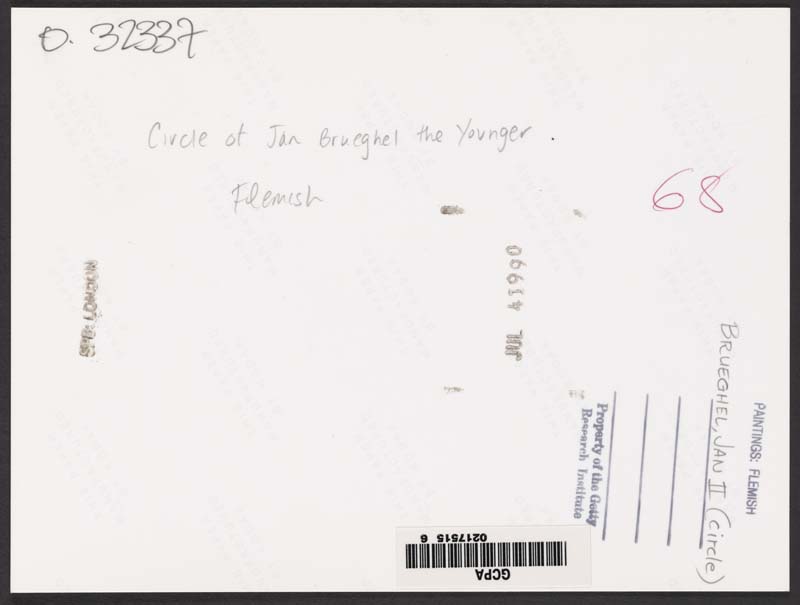 O. 32337
Circle of Jan Brueghel the Younger.
Flemish
68
JUL 4 1990
PAINTINGS: FLEMISH
BRUEGHEL, JAN II (Circle)
Property of the Getty
Research Institute
GCPA
0217515 6